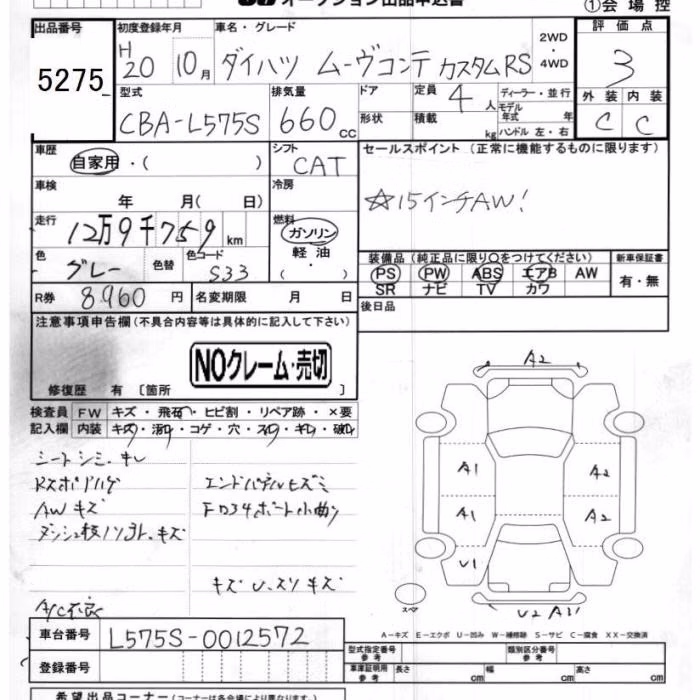 オークション出品申込書
①会場控
出品番号 初度登録年月 車名・グレード 評価点
5275 H20 10月 ダイハツ ムーヴコンテ カスタムRS 2WD・4WD 3
型式 排気量 ドア 定員 4人 ディーラー・並行 外装 内装
CBA-L575S 660cc 形状 積載 kg モデル年式 年 ハンドル 左・右 C C
車歴 シフト セールスポイント(正常に機能するものに限ります)
自家用・( ) CAT
車検 年 月( 日) 冷房
☆15インチAW!
走行 12万9千759km 燃料 ガソリン 軽油・( )
色 グレー 色替 色コード S33
装備品(純正品に限り○をつけてください) 新車保証書
PS PW ABS エアB AW 有・無
SR ナビ TV カワ
R券 8960円 名変期限 月 日 後日品
注意事項申告欄(不具合内容等は具体的に記入して下さい)
NOクレーム・売切
修復歴 有 [箇所 ]
検査員 FW キズ・飛石・ヒビ割・リペア跡・×要
記入欄 内装 キズ・汚れ・コゲ・穴・スレ・キレ・破れ
シートシミ・キレ
AWキズ
キズ U、スリキズ
A/C不良
A2
A1 A2
A1 A2
U1
スペア
U2
A-キズ E-エクボ U-凹み W-補修跡 S-サビ C-腐食 XX-交換済
車台番号 L575S-0012572
型式指定番号 参考 類別区分番号 参考
登録番号 車庫証明用 参考 長さ cm 幅 cm 高さ cm
希望出品コーナー(コーナーは各会場により異なります。)